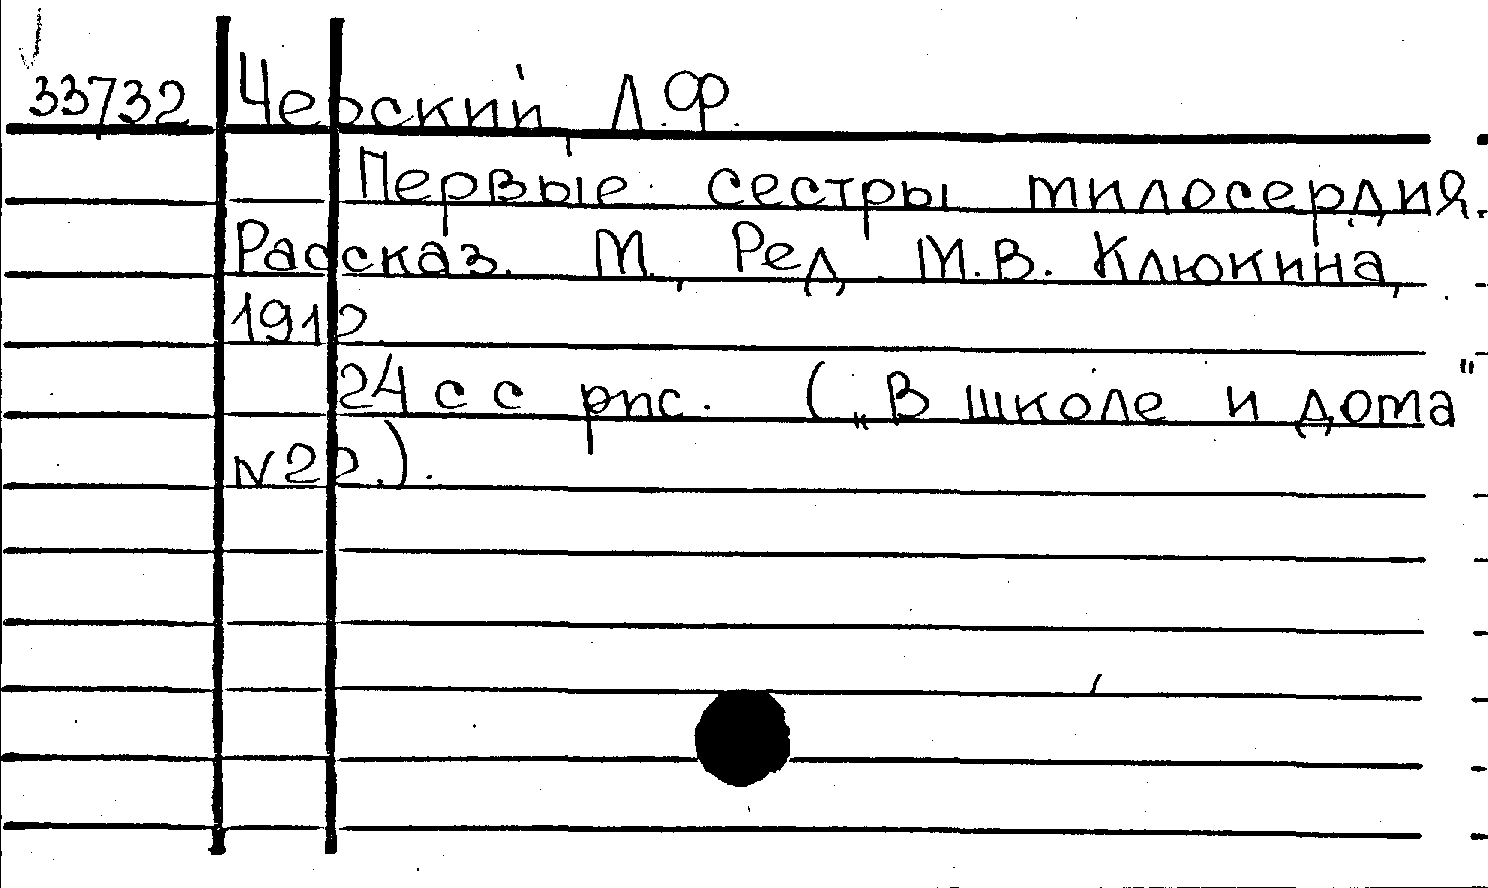 33732 Черский, Л.Ф.
Первые сестры милосердия.
Рассказ. М., Ред. М.В. Клюкина,
1912
24 с с рис. („В школе и дома"
N22.).